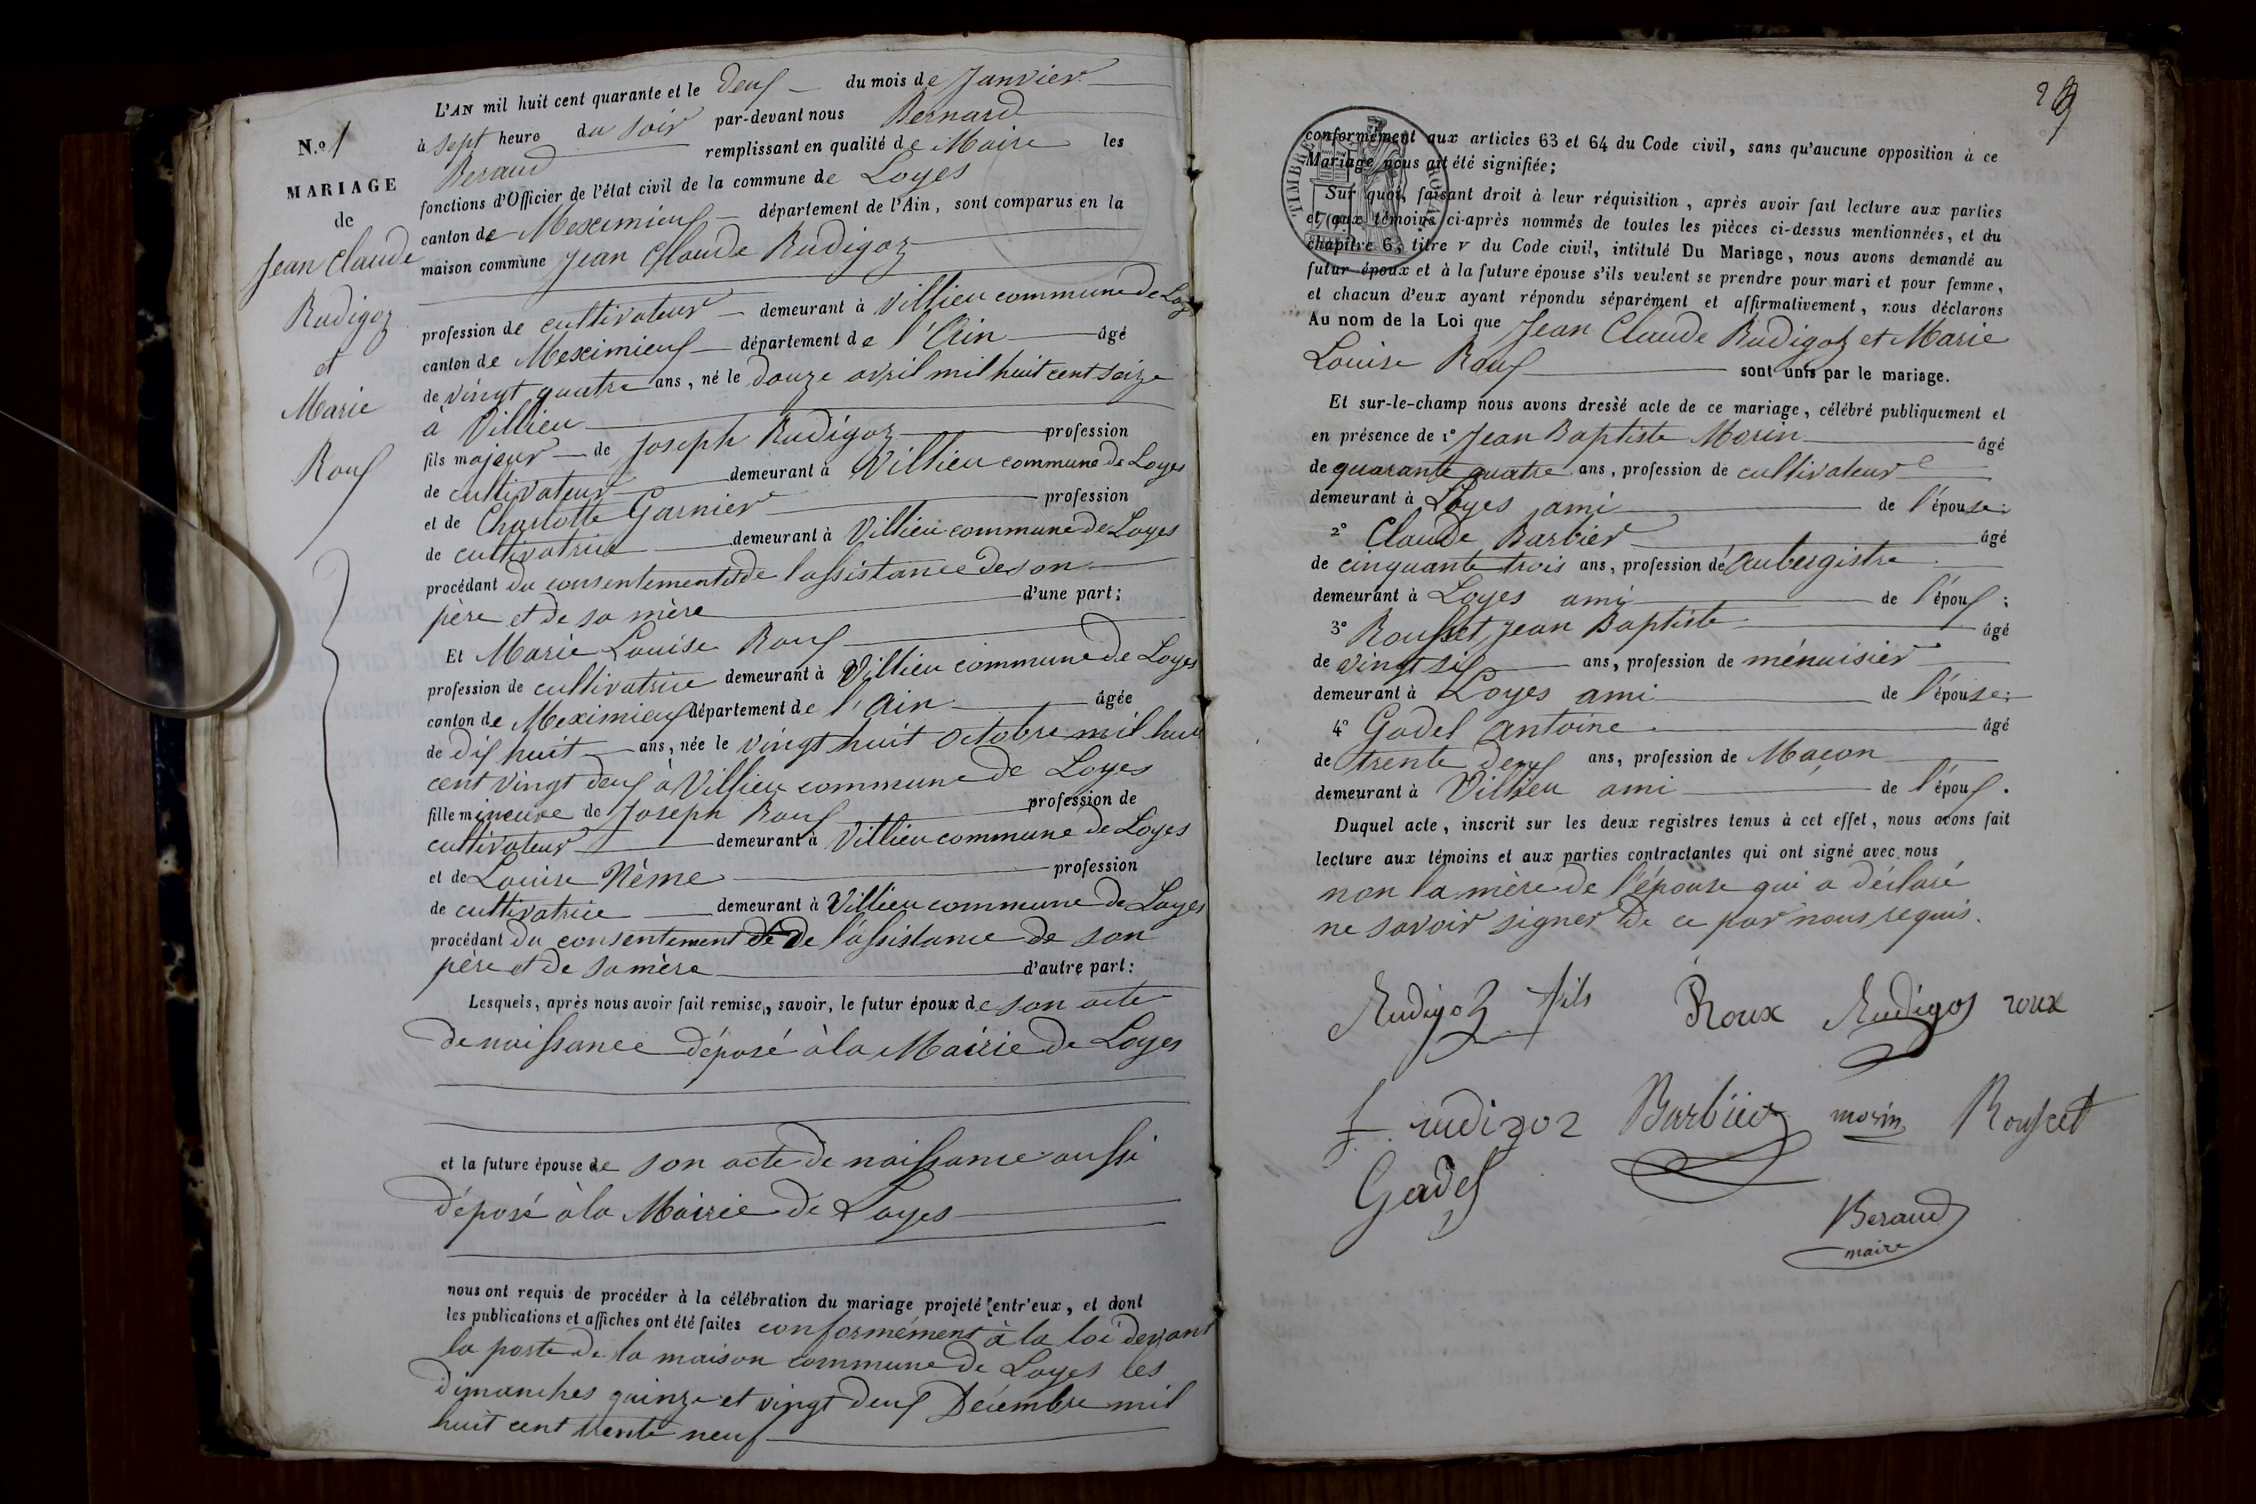 N.º 1
MARIAGE
de
Jean Claude
Rudigoz
et
Marie
Roux
L'AN mil huit cent quarante et le deux du mois de Janvier
à sept heure du soir par-devant nous Bernard
Beraud remplissant en qualité de Maire les
fonctions d'Officier de l'état civil de la commune de Loyes
canton de Meximieux département de l'Ain, sont comparus en la
maison commune Jean Claude Rudigoz
profession de cultivateur demeurant à Villieu commune de Loyes
canton de Meximieux département de l'Ain âgé
de vingt quatre ans, né le douze avril mil huit cent seize
à Villieu
fils majeur de Joseph Rudigoz profession
de cultivateur demeurant à Villieu commune de Loyes
et de Charlotte Garnier profession
de cultivatrice demeurant à Villieu commune de Loyes
procédant du consentement et de l'assistance de son
père et de sa mère d'une part;
Et Marie Louise Roux
profession de cultivatrice demeurant à Villieu commune de Loyes
canton de Meximieux département de l'Ain âgée
de dix huit ans, née le vingt huit octobre mil huit
cent vingt deux à Villieu commune de Loyes
fille mineure de Joseph Roux profession de
cultivateur demeurant à Villieu commune de Loyes
et de Louise Nême profession
de cultivatrice demeurant à Villieu commune de Loyes
procédant du consentement et de l'assistance de son
père et de sa mère d'autre part:
Lesquels, après nous avoir fait remise, savoir, le futur époux de son acte
de naissance déposé à la Mairie de Loyes
et la future épouse de son acte de naissance aussi
déposé à la Mairie de Loyes
nous ont requis de procéder à la célébration du mariage projeté entr'eux, et dont
les publications et affiches ont été faites conformément à la loi devant
la porte de la maison commune de Loyes les
dimanches quinze et vingt deux Décembre mil
huit cent trente neuf
TIMBRE ROYAL
conformément aux articles 63 et 64 du Code civil, sans qu'aucune opposition à ce
Mariage nous ait été signifiée;
Sur quoi, faisant droit à leur réquisition, après avoir fait lecture aux parties
et aux témoins ci-après nommés de toutes les pièces ci-dessus mentionnées, et du
chapitre 6, titre V du Code civil, intitulé Du Mariage, nous avons demandé au
futur époux et à la future épouse s'ils veulent se prendre pour mari et pour femme,
et chacun d'eux ayant répondu séparément et affirmativement, nous déclarons
Au nom de la Loi que Jean Claude Rudigoz et Marie
Louise Roux sont unis par le mariage.
Et sur-le-champ nous avons dressé acte de ce mariage, célébré publiquement et
en présence de 1º Jean Baptiste Morin âgé
de quarante quatre ans, profession de cultivateur
demeurant à Loyes ami de l'épouse;
2º Claude Barbier âgé
de cinquante trois ans, profession d'aubergistre
demeurant à Loyes ami de l'époux;
3º Rousset Jean Baptiste âgé
de vingt six ans, profession de ménuisier
demeurant à Loyes ami de l'épouse;
4º Gadel Antoine âgé
de trente deux ans, profession de Maçon
demeurant à Villieu ami de l'époux.
Duquel acte, inscrit sur les deux registres tenus à cet effet, nous avons fait
lecture aux témoins et aux parties contractantes qui ont signé avec nous
non la mère de l'épouse qui a déclaré
ne savoir signer de ce par nous requis.
Rudigoz fils Roux Rudigoz roux
rudigoz Barbier morin Rousset
Gadel
Beraud
maire